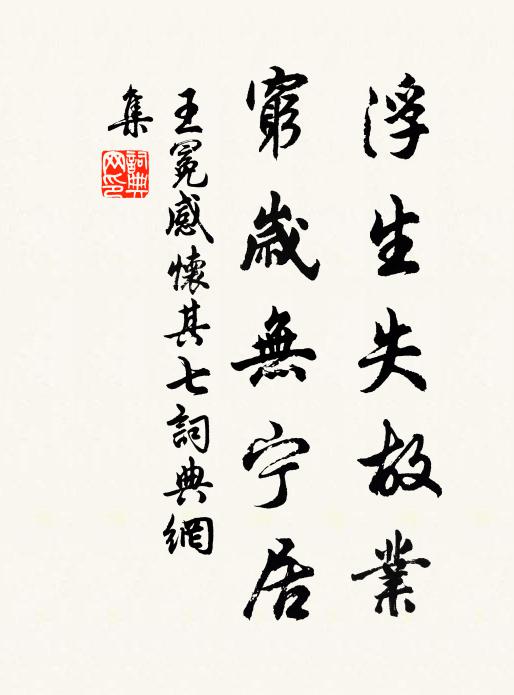 浮生失故業
窮歲無宁居
王冕感懷其七詞典網
集
詞典网印